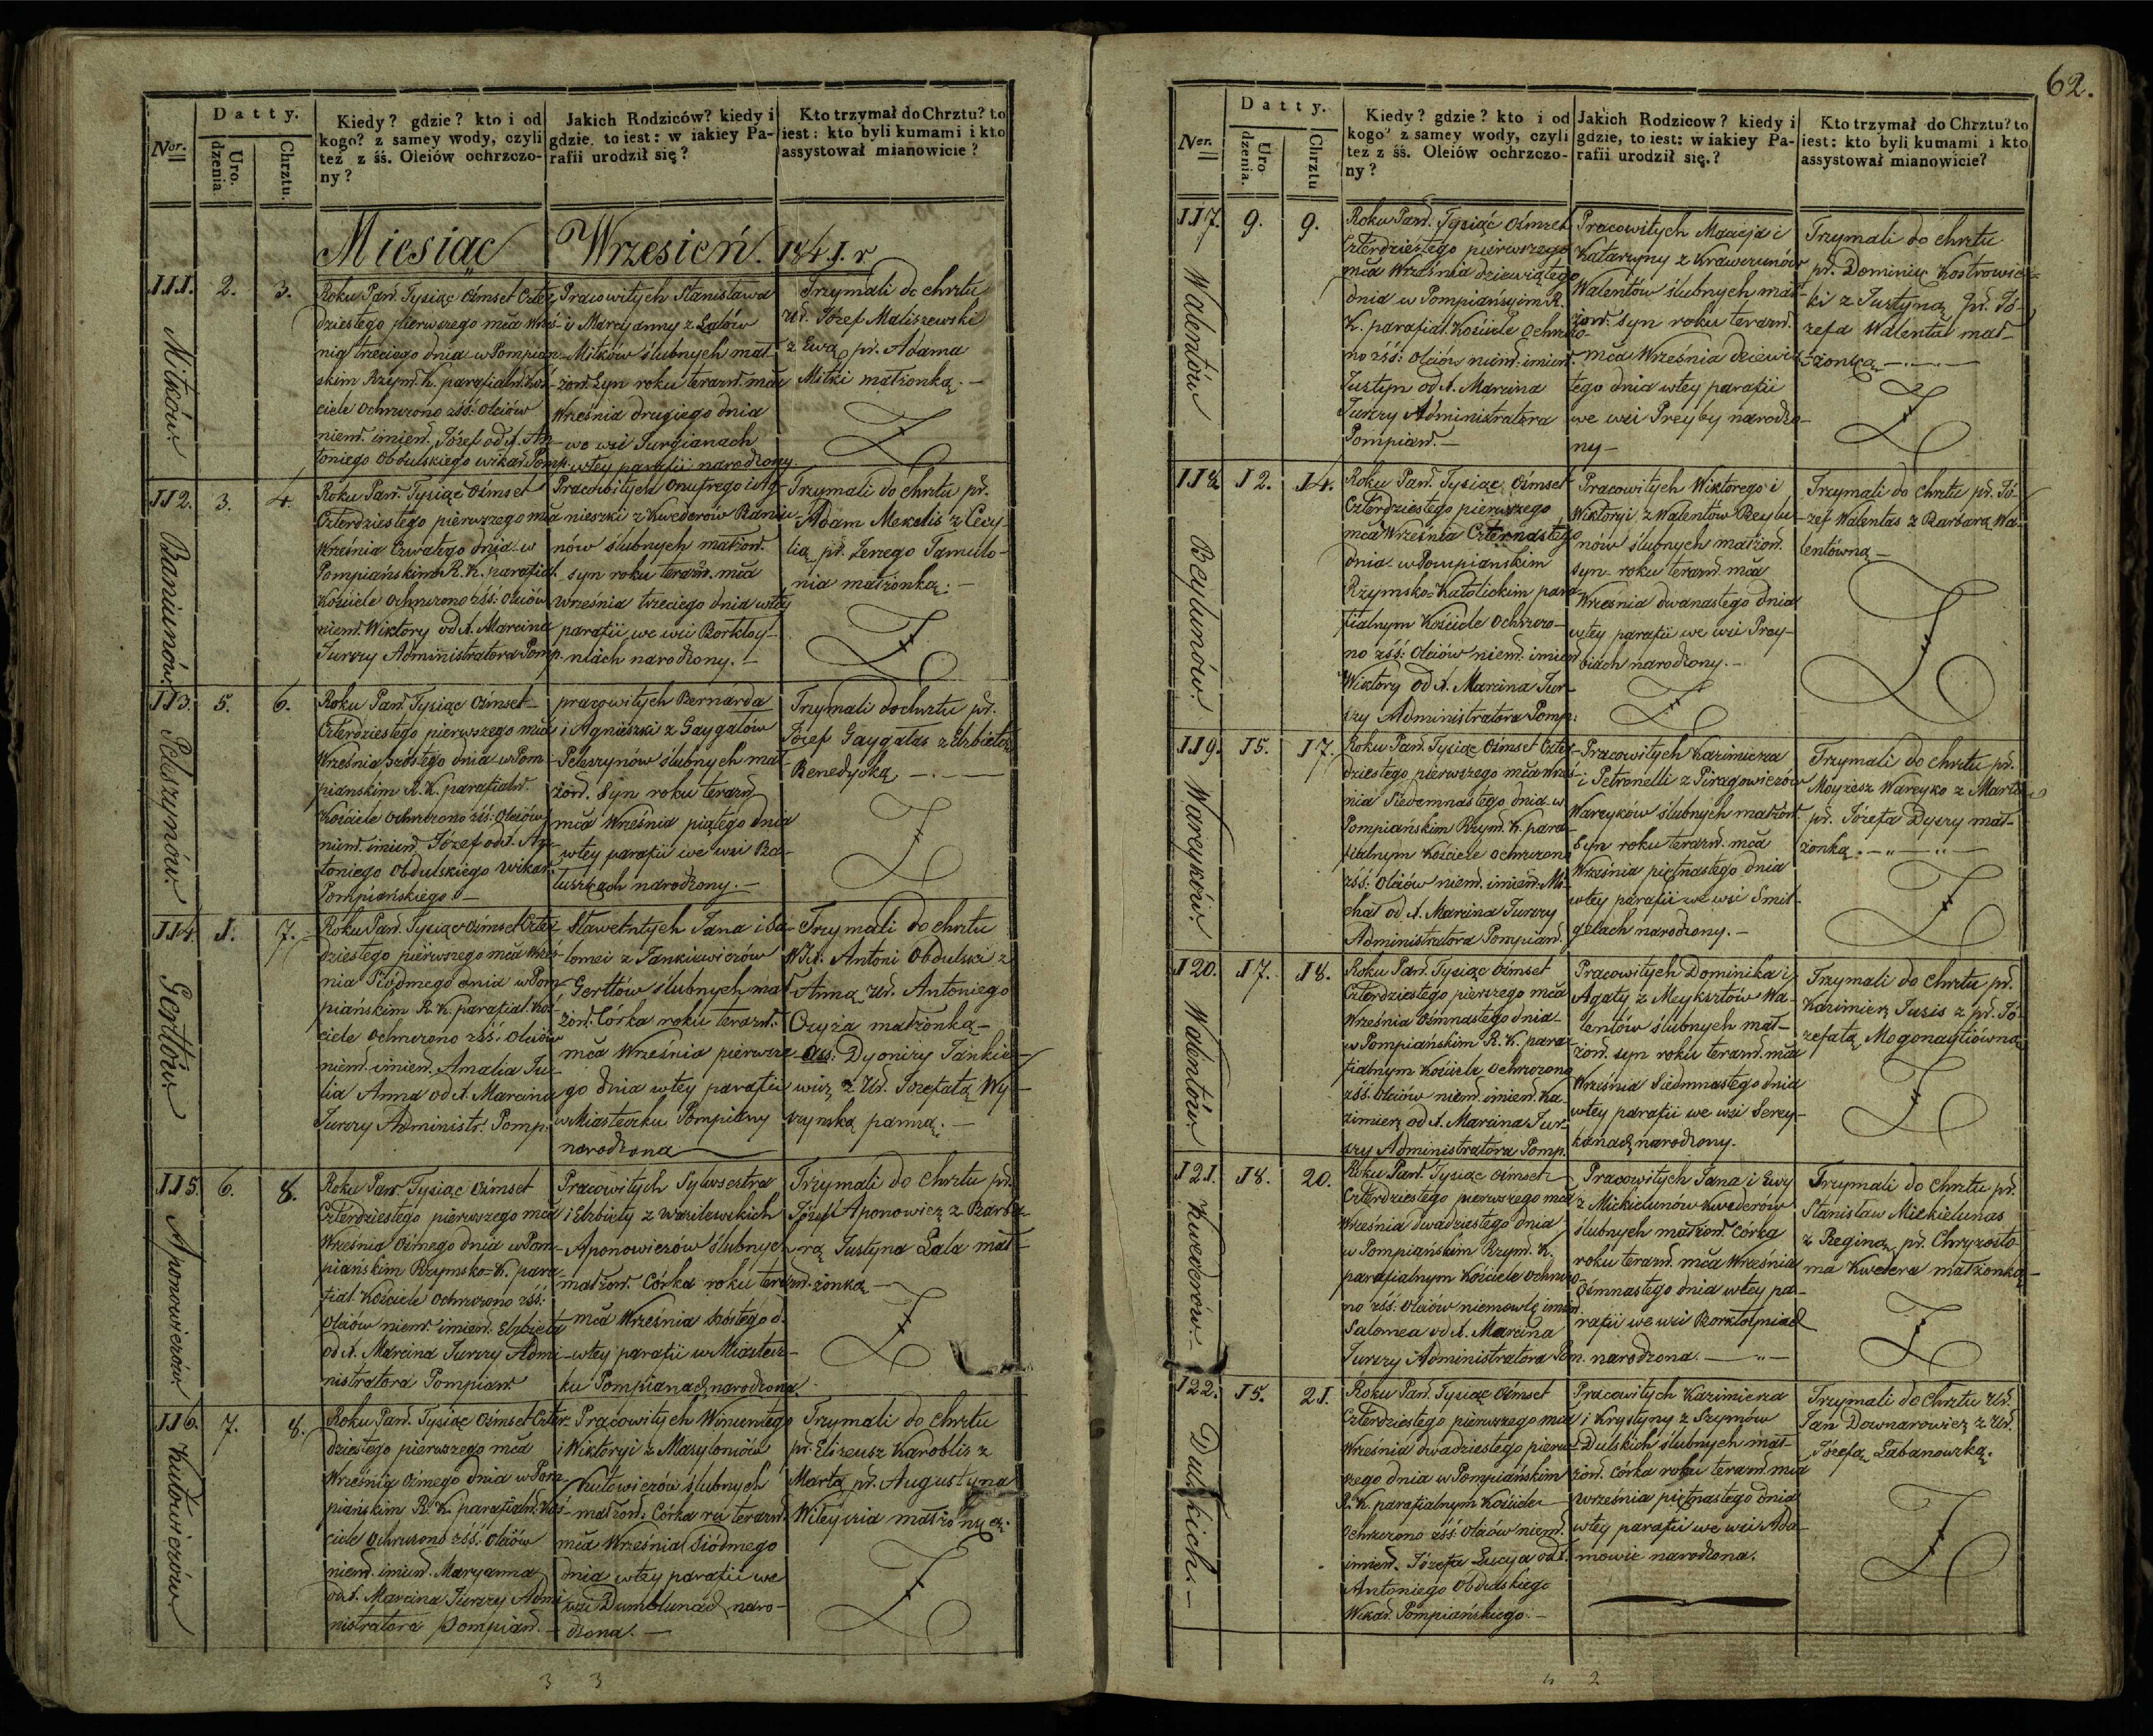 Nor.
Datty.
Uro.
dzenia.
Chrztu.
Kiedy? gdzie? kto i od
kogo? z samey wody, czyli
też z śś. Oleiów ochrzczo-
ny?
Jakich Rodziców? kiedy i
gdzie, to iest: w iakiey Pa-
rafii urodził się?
Kto trzymał do Chrztu? to
iest: kto byli kumami i kto
assystował mianowicie?
Miesiąc Wrzesień. 1841. r
111. 2. 3.
Mitków.
Roku Pań. Tysiąc Ośmset Czter-
dziestego pierwszego mca Wrześ-
nia trzeciego dnia w Pompian-
skim Rzym. K. parafialn. Koś-
ciele Ochrzczono z śś: Oleiów
niem. imien. Józef od X. An-
toniego Obdulskiego wikar. Pomp.
Pracowitych Stanisława
i Maryanny z Lalów
Mitków ślubnych mał-
żon. Syn roku terazn. mca
Września drugiego dnia
we wsi Jurgianach
w tey parafii narodzony.
Trzymali do chrztu
Ur. Józef Maliszewski
z Ewą pr. Adama
Mitki małżonką. —
112. 3. 4.
Baniunów.
Roku Pań. Tysiąć Ośmset
Czterdziestego pierwszego mca
Września Czwartego dnia w
Pompiańskim R. K. parafial.
Kościele Ochrzczono z śś: Oleiów
niem. Wiktory od X. Marcina
Jurczy Administratora Pomp.
Pracowitych Onufrego i Ag-
nieszki z Kwederów Baniu-
nów ślubnych małżon.
syn roku terazn. mca
września trzeciego dnia w tey
parafii we wsi Borkłoy-
niach narodzony. —
Trzymali do chrztu pr.
Adam Mekelis z Cecy-
lią pr. Jerzego Tamulo-
nia małżonką. —
113. 5. 6.
Peleszynów.
Roku Pań. Tysiąc Ośmset
Czterdziestego pierwszego mca
Września szóstego dnia w Pom-
pianskim R. K. parafialn.
Kościele Ochrzczono z śś: Oleiów
niem. imien. Józef od X. An-
toniego Obdulskiego wikar.
Pompiańskiego —
pracowitych Bernarda
i Agnieszki z Gaygałów
Peleszynów ślubnych mał-
żon. Syn roku terazn
mca Września piątego dnia
w tey parafii we wsi
narodzony. —
Trzymali do chrztu pr.
Józef Gaygalas z Elżbietą
Benedycką —
114. 1. 7.
Gertlów
Roku Pań. Tysiąc Ośmset Czter-
dziestego pierwszego mca Wrześ-
nia Siódmego dnia w Pom-
piańskim R. K. parafial. Koś-
ciele Ochrzczono z śś: Oleiów
niem. imien. Amalia Ju-
lia Anna od X. Marcina
Jurczy Administr. Pomp.
Sławetnych Jana i Sa-
lomei z Jankiewiczów
Gertlów ślubnych mał-
żon. Córka roku terazn.
mca Września pierwsze-
go dnia w tey parafii
w Miasteczku Pompiany
narodzona
Trzymali do chrztu
WX. Antoni Obdulski z
Anną Ur. Antoniego
Czyża małżonką —
Ass: Dyonizy Jankie-
wicz z Ur. Józefatą Wy-
szynską panną. —
115. 6. 8.
Aponowiczów
Roku Pań. Tysiąc Ośmset
Czterdziestego pierwszego mca
Września Osmego dnia w Pom-
piańskim Rzymsko-K. para-
fial. Kościele Ochrzczono z śś:
Oleiów niem. imien. Elżbieta
od X. Marcina Jurczy Admi-
nistratora Pompian.
Pracowitych Sylwestra
i Elżbiety z Wasilewskich
Aponowiczów ślubnych
małżon. Córka roku terazn.
mca Września szóstego d.
w tey parafii w Miastecz-
ku Pompianach narodzona
Trzymali do chrztu pr.
Józef Aponowicz z Barba-
rą Justyna Lala mał-
żonką —
116. 7. 8.
Kutowiczów
Roku Pań. Tysiąc Ośmset Czter-
dziestego pierwszego mca
Września Osmego dnia w Pom-
piańskim R. K. parafialn. Koś-
ciele Ochrzczono z śś: Oleiów
niem. imien. Maryanna
od X. Marcina Jurczy Admi-
nistratora Pompian. —
Pracowitych Wincentego
i Wiktoryi z Masyloniów
Kutowiczów ślubnych
małżon. Córka ru terazn.
mca Września Siódmego
dnia w tey parafii we
wsi Dumblunach naro-
dzona. —
Trzymali do chrztu
pr. Elizeusz Karoblis z
Martą pr. Augustyna
małżonką.
3 3
62.
Nor.
Datty.
Uro
dzenia.
Chrztu
Kiedy? gdzie? kto i od
kogo? z samey wody, czyli
też z śś. Oleiów ochrzczo-
ny?
Jakich Rodzicow? kiedy i
gdzie, to iest: w iakiey Pa-
rafii urodził się.?
Kto trzymał do Chrztu? to
iest: kto byli kumami i kto
assystował mianowicie?
117. 9. 9.
Walentów
Roku Pań. Tysiąć Ośmset
Czterdziestego pierwszego
mca Września dziewiątego
dnia w Pompiańskim R.
K. parafial. Kościele Ochrzczo-
no z śś: Oleiów niem. imien.
Justyn od X. Marcina
Jurczy Administratora
Pompian. —
Pracowitych Macieja i
Katarzyny z Krawczunów
Walentów ślubnych mał-
żon. syn roku terazn.
mca Września dziewią-
tego dnia w tey parafii
we wsi Preyby narodzo-
ny —
Trzymali do chrztu
pr. Dominik Kostrowic-
ki z Justyną pr. Jó-
zefa Walenta mał-
żonką —
118. 12. 14.
Beylunów.
Roku Pań. Tysiąc Ośmset
Czterdziestego pierwszego
mca Września Czternastego
dnia w Pompianskim
Rzymsko-Katolickim para-
fialnym Kościele Ochrzczo-
no z śś: Oleiów niem. imien
Wiktory od X. Marcina Jur-
czy Administratora Pomp:
Pracowitych Wiktorego i
Wiktoryi z Walentów Beylu-
nów ślubnych małżon.
syn roku terazn. mca
Września dwanastego dnia
w tey parafii we wsi Prey-
biach narodzony. —
Trzymali do chrztu pr. Jó-
zef Walentas z Barbarą Wa-
lentówną —
119. 15. 17.
Wareyków.
Roku Pań. Tysiąc Ośmset Czter-
dziestego pierwszego mca Wrześ-
nia Siedemnastego dnia w
Pompiańskim Rzym. K. para-
fialnym Kościele Ochrzczono
z śś: Oleiów niem. imien. Mi-
chał od X. Marcina Jurczy
Administratora Pompian.
Pracowitych Kazimierza
i Petronelli z Piragowiczów
Wareyków ślubnych małżon.
Syn roku terazn. mca
Września piętnastego dnia
w tey parafii we wsi Smil-
gelach narodzony. —
Trzymali do chrztu pr.
Moyżesz Wareyko z Martą
pr. Józefa Dyczy mał-
żonką. —
120. 17. 18.
Walentów.
Roku Pań. Tysiąc Ośmset
Czterdziestego pierszego mca
Września Ośmnastego dnia
w Pompiańskim R. K. para-
fialnym Kościele Ochrzczono
z śś. Oleiów niem. imien. Ka-
zimierz od X. Marcina Jur-
czy Administratora Pomp.
Pracowitych Dominika i
Agaty z Meyksztów Wa-
lentów ślubnych mał-
żon. syn roku terazn. mca
Września Siedmnastego dnia
w tey parafii we wsi Serey-
kanach narodzony.
Trzymali do chrztu pr.
Kazimierz Jusis z pr. Jó-
zefatą
121. 18. 20.
Kwederów. —
Roku Pań. Tysiąc Ośmset
Czterdziestego pierwszego mca
Września dwudziestego dnia
w Pompiańskim Rzym. K.
parafialnym Kościele Ochrzczo-
no z śś: Oleiów niemowlę imien
Salomea od X. Marcina
Jurczy Administratora Pom.
Pracowitych Jana i Ewy
z Mickielunów Kwederów
ślubnych małżon. Córka
roku terazn. mca Września
Ośmnastego dnia w tey pa-
rafii we wsi Borkłoyniach
narodzona. —
Trzymali do chrztu pr.
Stanisław Mickielunas
z Reginą pr. Chryzosto-
ma Kwedera małżonką —
122. 15. 21.
Dulskich. —
Roku Pań. Tysiąc Ośmset
Czterdziestego pierwszego mca
Września dwudziestego pierw-
szego dnia w Pompiańskim
R. K. parafialnym Kościele
Ochrzczono z śś. Oleiów niem.
imien. Józefa Łucya od X.
Antoniego Obdulskiego
Wikar. Pompiańskiego. —
Pracowitych Kazimierza
i Krystyny z Szymów
Dulskich ślubnych mał-
żon. Córka roku terazn. mca
września piętnastego dnia
w tey parafii we wsi Ada-
mowie narodzona.
Trzymali do Chrztu Ur.
Jan Downarowicz z Ur.
Józefą Łabanowską.
4 2